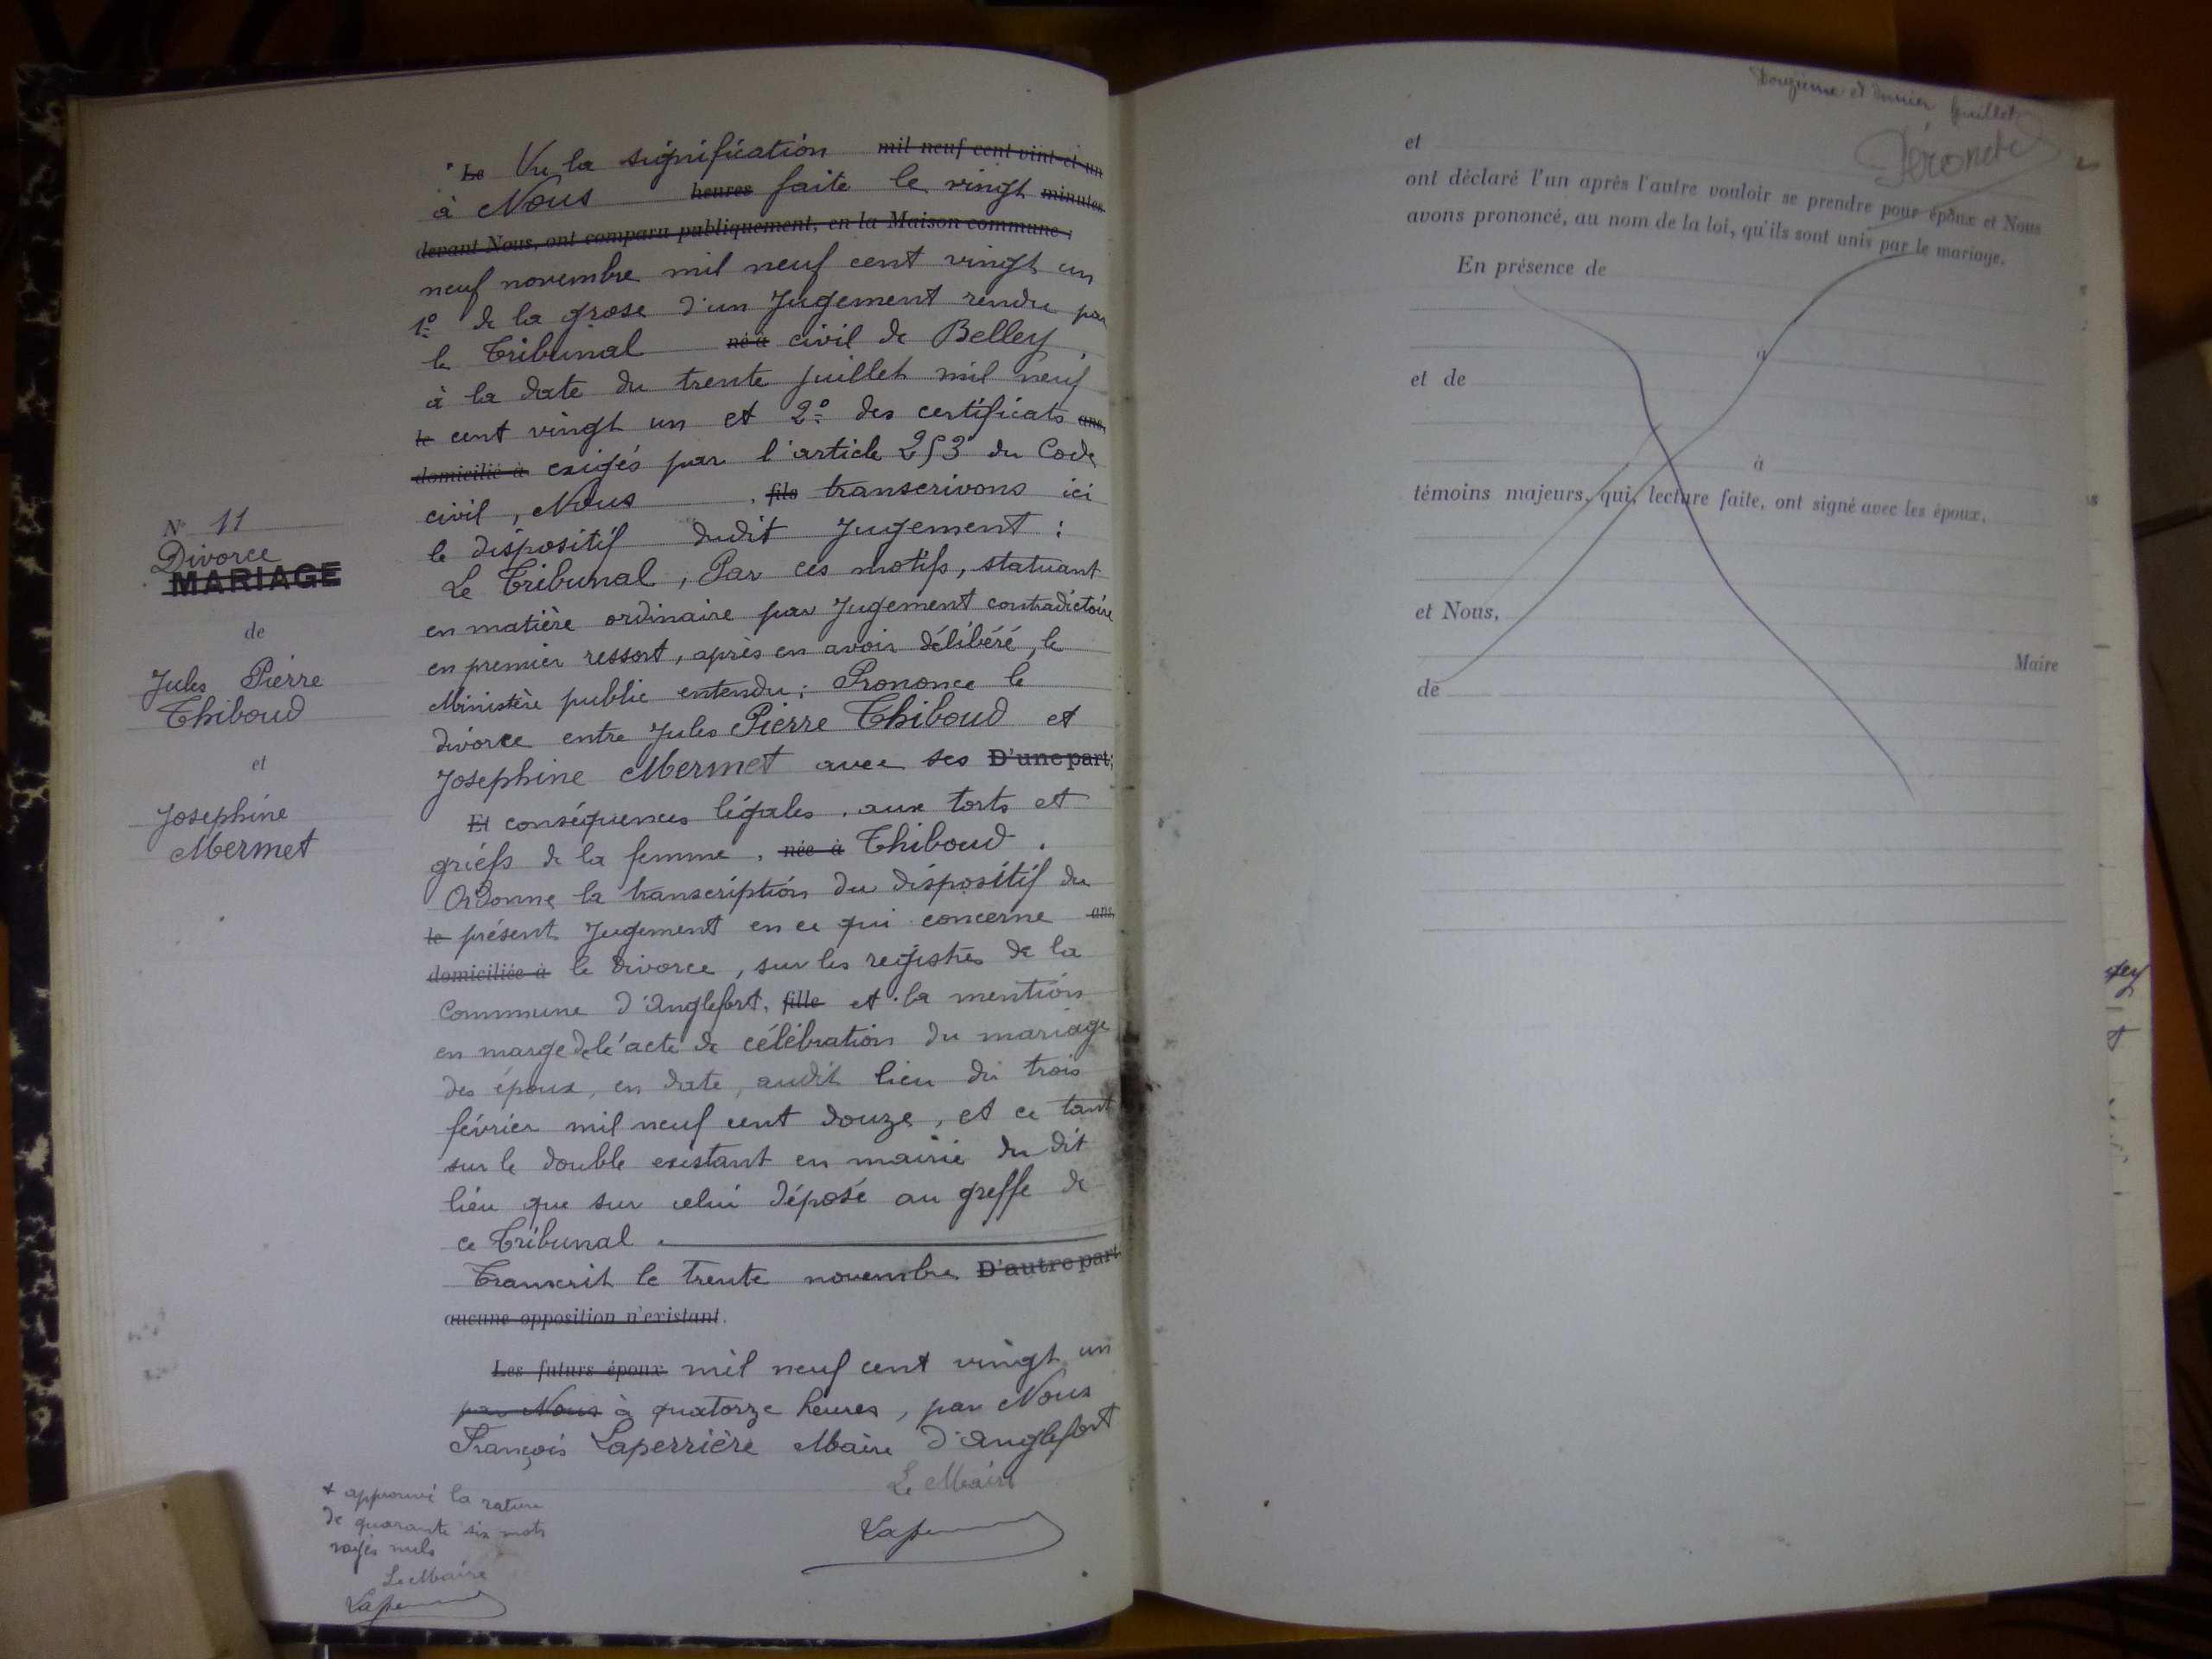 N° 11
Divorce
MARIAGE
de
Jules Pierre
Thiboud
et
Josephine
Mermet
Le Vu la signification mil neuf cent vint-et-un
à Nous heures faite le vingt minutes
devant Nous, ont comparu publiquement, en la Maison commune :
neuf novembre mil neuf cent vingt un
1° de la grose d'un Jugement rendu par
le Tribunal né à civil de Belley,
à la date du trente juillet mil neuf
le cent vingt un et 2° des certificats ans,
domicilié à exigés par l'article 253 du Code
civil, Nous , fils transcrivons ici
le dispositif dudit Jugement :
Le Tribunal, Par ces motifs, statuant
en matière ordinaire par Jugement contradictoire
en premier ressort, après en avoir délibéré, le
Ministère public entendu ; Prononce le
divorce entre Jules Pierre Thiboud et
Josephine Mermet avec ses D'une part;
Et conséquences légales, aux torts et
griefs de la femme, née à Thiboud.
Ordonne la transcription du dispositif du
le présent Jugement en ce qui concerne ans,
domiciliée à le divorce, sur les registres de la
Commune d'Anglefort, fille et la mention
en marge de l'acte de célébration du mariage
des époux, en date, audit lieu du trois
février mil neuf cent douze, et ce tant
sur le double existant en mairie du dit
lieu que sur celui déposé au greffe de
ce Tribunal.
Transcrit le trente novembre D'autre part
aucune opposition n'existant.
Les futurs époux mil neuf cent vingt un
par Nous à quatorze heures, par Nous
François Laperrière Maire d'Anglefort
Le Maire
+ approuvé la rature
de quarante six mots
rayés nuls
Le Maire
Douzième et dernier feuillet
et
ont déclaré l'un après l'autre vouloir se prendre pour époux et Nous
avons prononcé, au nom de la loi, qu'ils sont unis par le mariage.
En présence de
à
et de
à
témoins majeurs, qui, lecture faite, ont signé avec les époux,
et Nous,
Maire
de